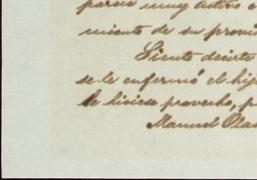 parece muy activo e
miento de su provin
Siento decirte
se le enfermó el hij
le hiciese provecho, p
Manuel Ola